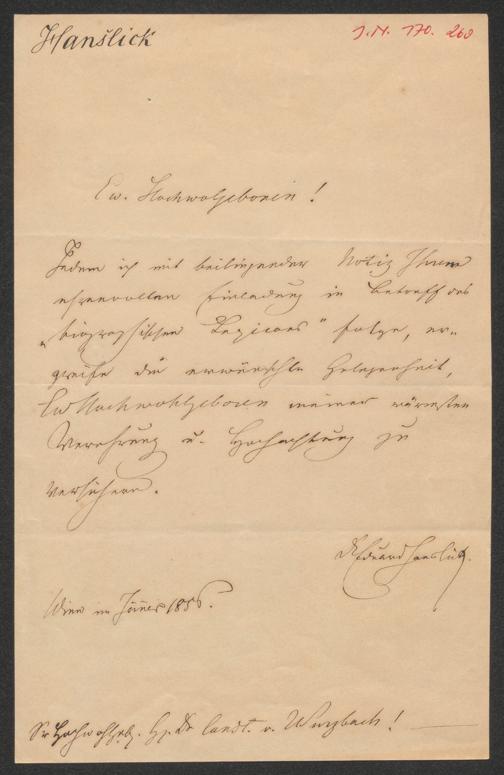 Hanslick
I.N. 170.260
Ew. Hochwolgeboren!
Indem ich mit beiliegender Notiz Ihrer
ehrenvollen Einladung in Betreff des
„biographischen Lexicons" folge, er-
greife die erwünschte Gelegenheit,
Ew Hochwohlgeboren meiner wärmsten
Verehrung u. Hochachtung zu
versichern.
Dr Eduard Hanslick.
Wien im Jänner 1856.
Sr Hochwohlgeb. H. Dr Const. v. Wurzbach!